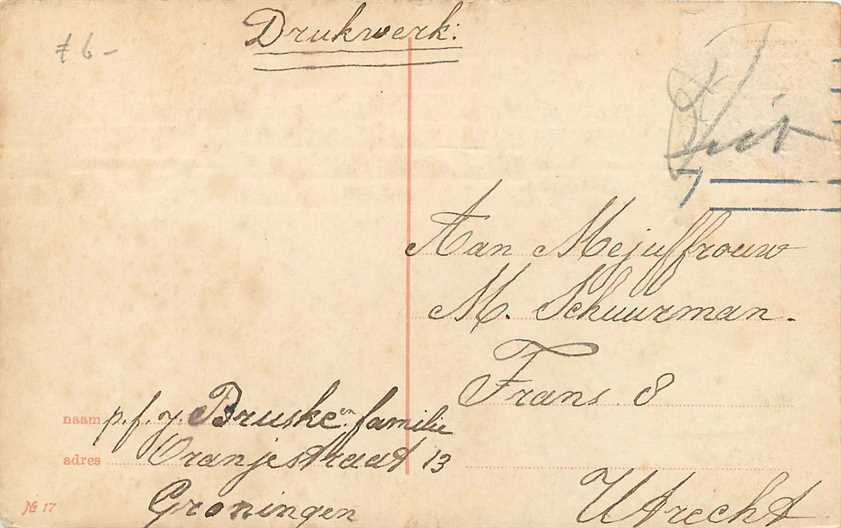 Drukwerk:
£ 6 -
Aan Mejuffrouw
M. Schuurman.
Frans 8
Utrecht
naam p.f. J. Bruske en familie
adres Oranjestraat 13
Groningen
№ 17